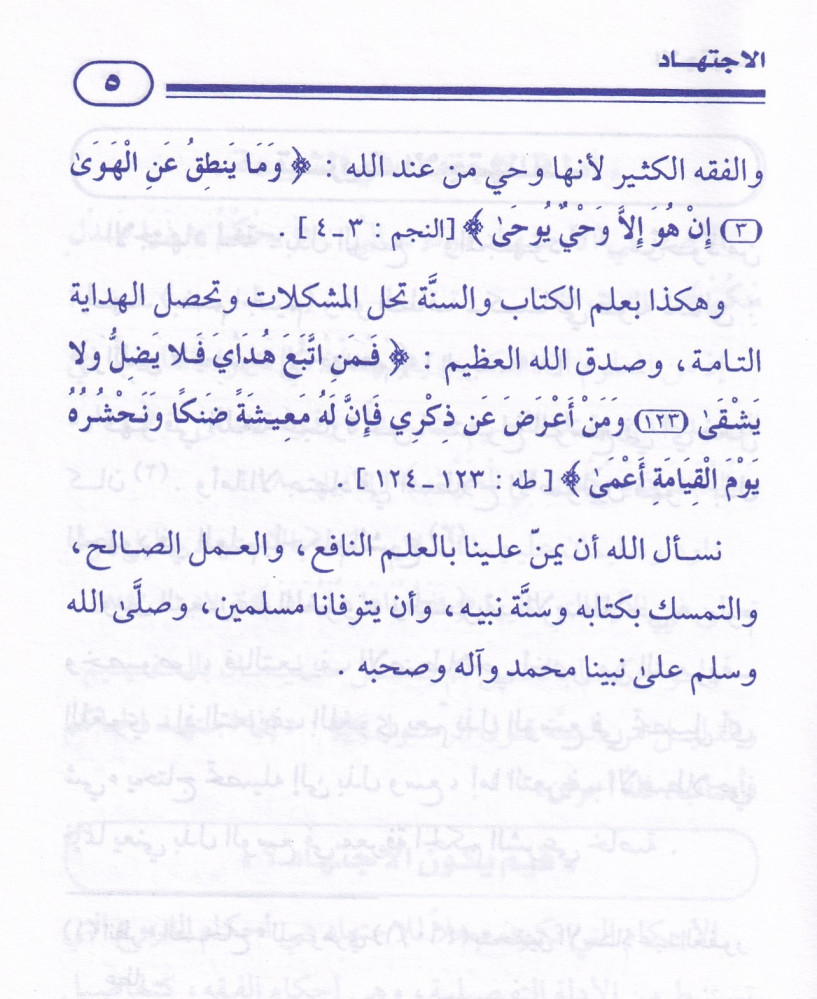 الاجتهـاد
٥
والفقه الكثير لأنها وحي من عند الله : ﴿ وَمَا يَنطِقُ عَنِ الْهَوَىٰ
(٣) إِنْ هُوَ إِلاَّ وَحْيٌ يُوحَىٰ ﴾ [النجم : ٣ـ٤] .
وهكذا بعلم الكتاب والسنَّة تحل المشكلات وتحصل الهداية
التامة ، وصدق الله العظيم : ﴿ فَمَنِ اتَّبَعَ هُدَاي فَلا يَضِلُّ ولا
يَشْقَىٰ (١٢٣) وَمَنْ أَعْرَضَ عَن ذِكْرِي فَإِنَّ لَهُ مَعِيشَةً ضَنكًا وَنَحْشُرُهُ
يَوْمَ الْقِيَامَةِ أَعْمَىٰ ﴾ [ طه : ١٢٣ـ١٢٤ ] .
نسأل الله أن يمنّ علينا بالعلم النافع ، والعمل الصالح ،
والتمسك بكتابه وسنَّة نبيه ، وأن يتوفانا مسلمين ، وصلَّىٰ الله
وسلم علىٰ نبينا محمد وآله وصحبه .